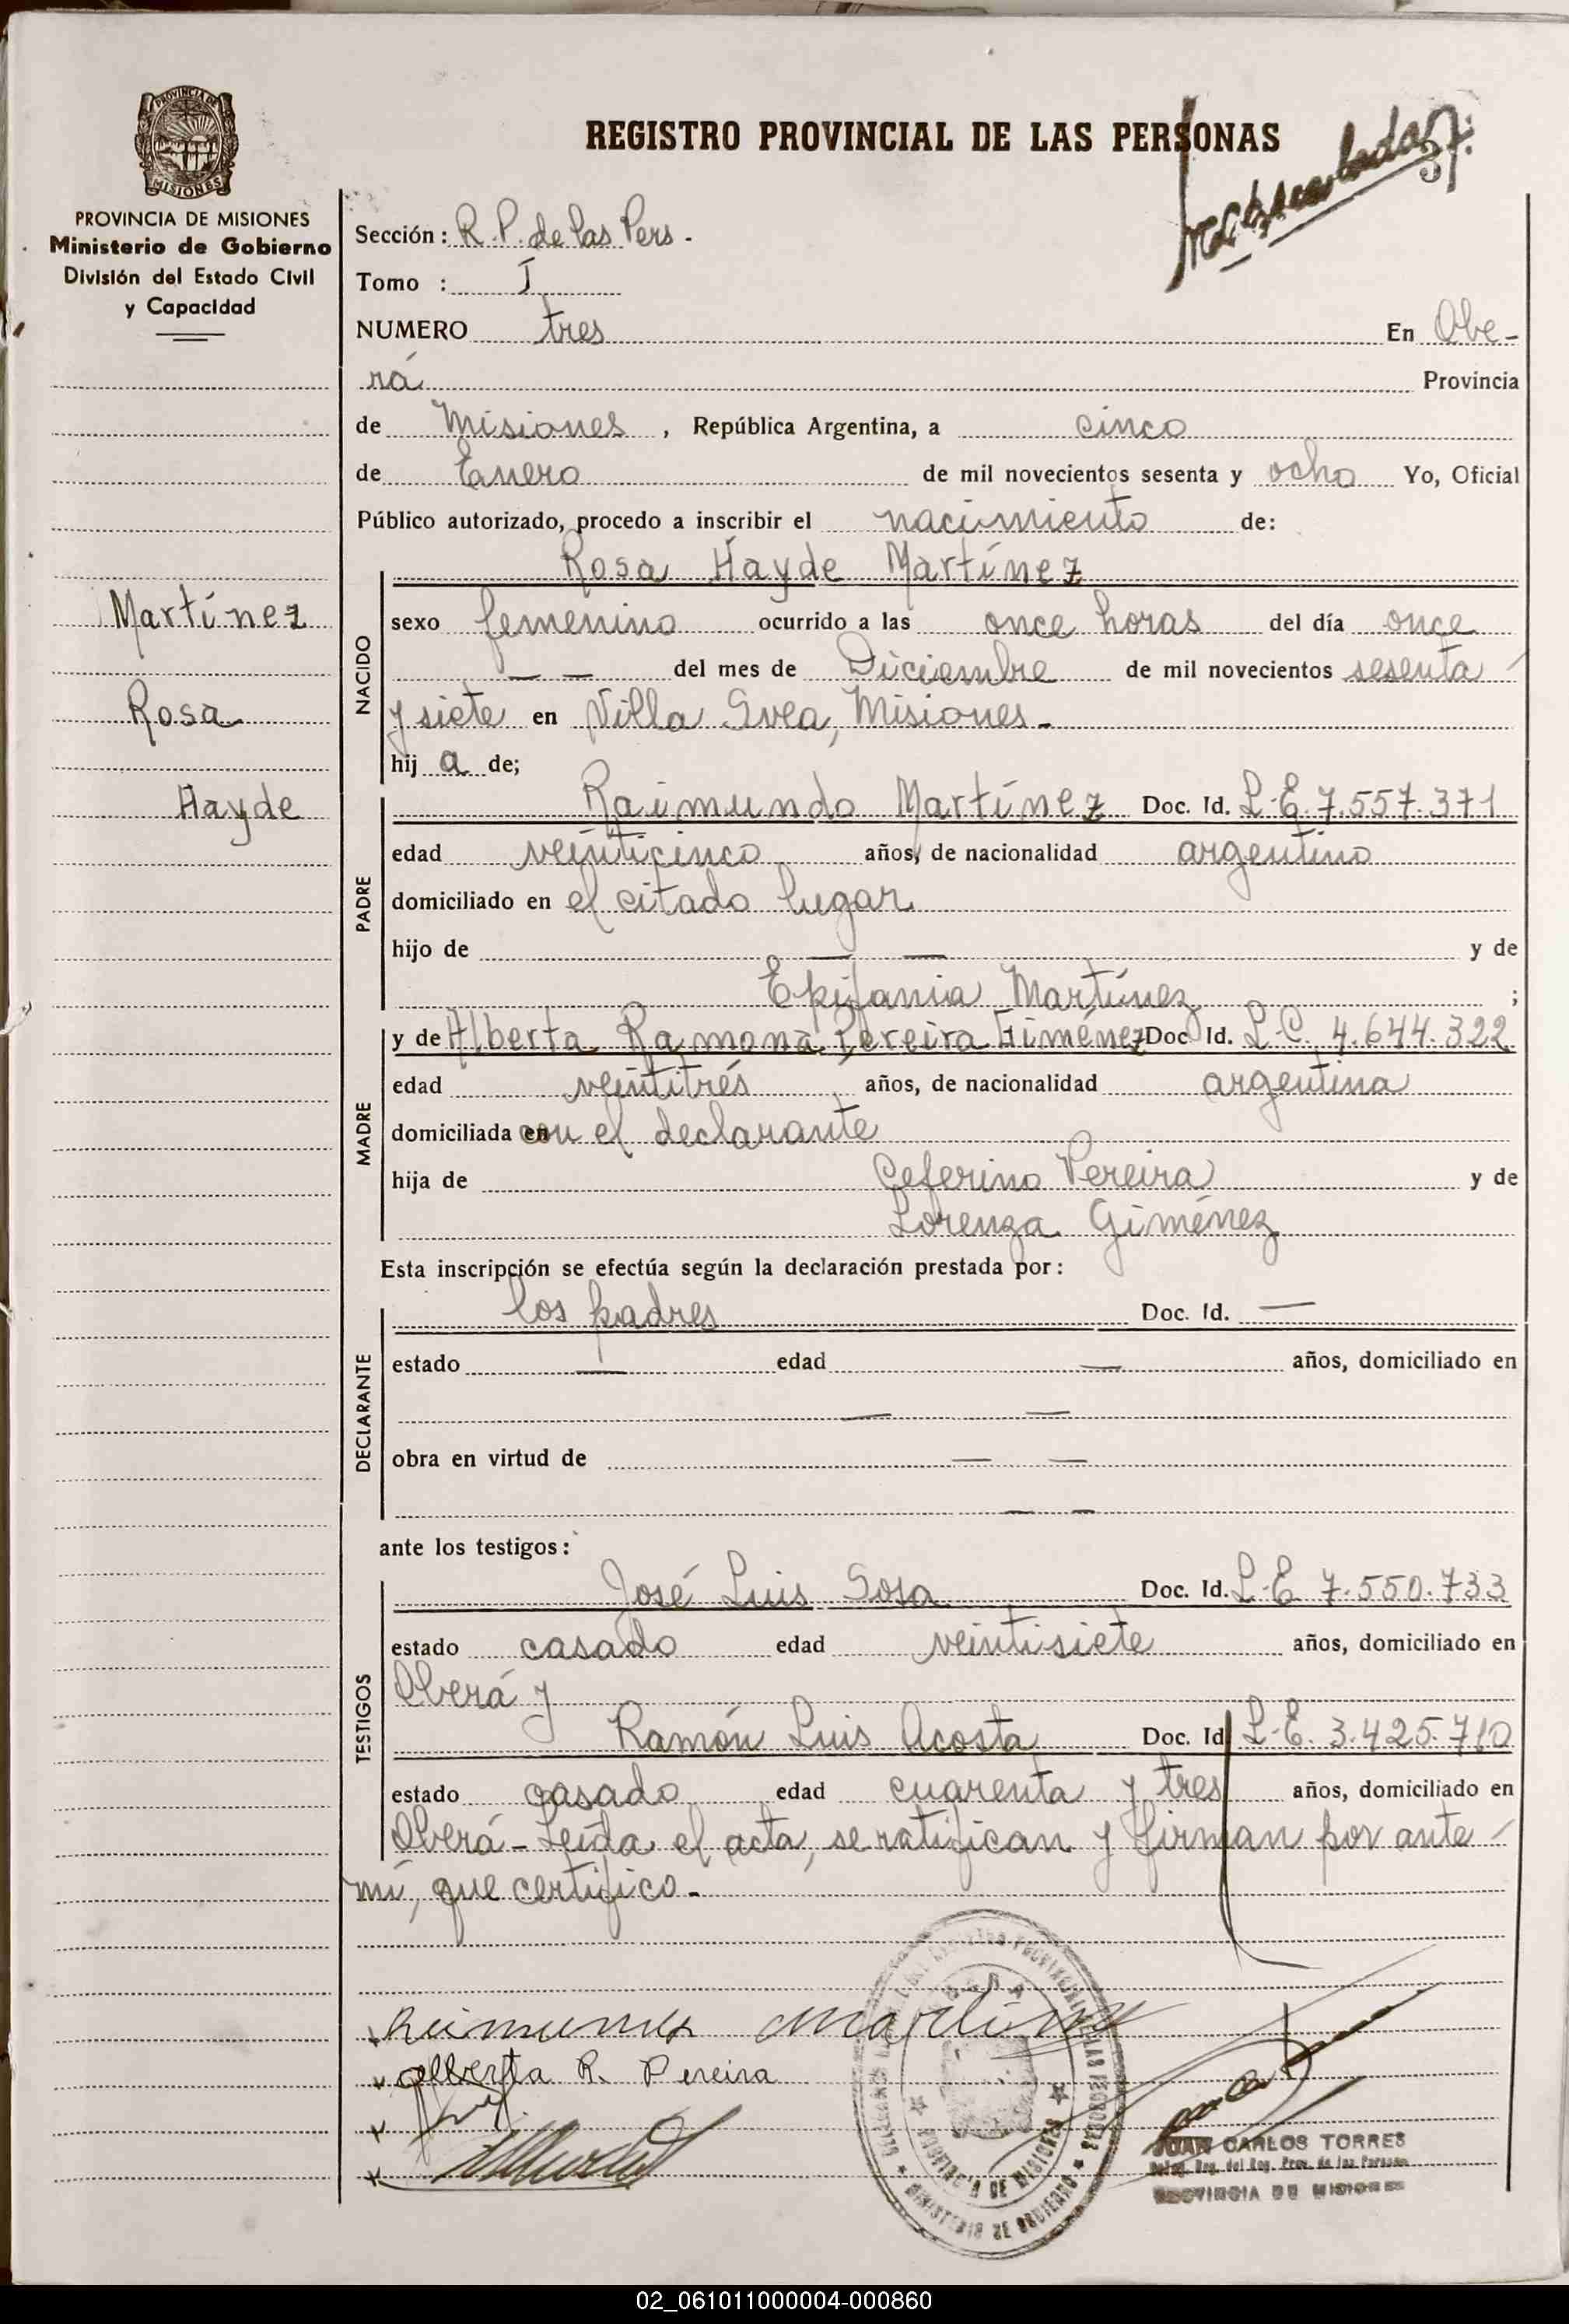 PROVINCIA DE
MISIONES
PROVINCIA DE MISIONES
Ministerio de Gobierno
División del Estado Civil
y Capacidad
Martínez
Rosa
Hayde
REGISTRO PROVINCIAL DE LAS PERSONAS
Sección: R. P. de las Pers.
Tomo : I
NUMERO tres En Obe-
rá Provincia
de Misiones, República Argentina, a cinco
de Enero de mil novecientos sesenta y ocho Yo, Oficial
Público autorizado, procedo a inscribir el nacimiento de:
NACIDO
Rosa Hayde Martínez
sexo femenino ocurrido a las once horas del día once
— — del mes de Diciembre de mil novecientos sesenta
y siete en Villa Svea, Misiones.
hij a de;
PADRE
Raimundo Martínez Doc. Id. L.E. 7.557.371
edad veinticinco años, de nacionalidad argentino
domiciliado en el citado lugar
hijo de — — y de
Epifania Martínez ;
MADRE
y de Alberta Ramona Pereira Giménez Doc. Id. L.C. 4.644.322
edad veintitrés años, de nacionalidad argentina
domiciliada con el declarante
hija de Ceferino Pereira y de
Lorenza Giménez
Esta inscripción se efectúa según la declaración prestada por:
DECLARANTE
los padres Doc. Id. —
estado — edad — años, domiciliado en
— —
obra en virtud de — —
— —
ante los testigos:
TESTIGOS
José Luis Sosa Doc. Id. L.E. 7.550.733
estado casado edad veintisiete años, domiciliado en
Oberá y
Ramón Luis Acosta Doc. Id. L.E. 3.425.710
estado casado edad cuarenta y tres años, domiciliado en
Oberá - Leída el acta, se ratifican y firman por ante
mí, que certifico.
Martinez
Alberta R. Pereira
OBERA
PROVINCIA DE MISIONES
MINISTERIO DE GOBIERNO
JUAN CARLOS TORRES
PROVINCIA DE MISIONES
02_061011000004-000860